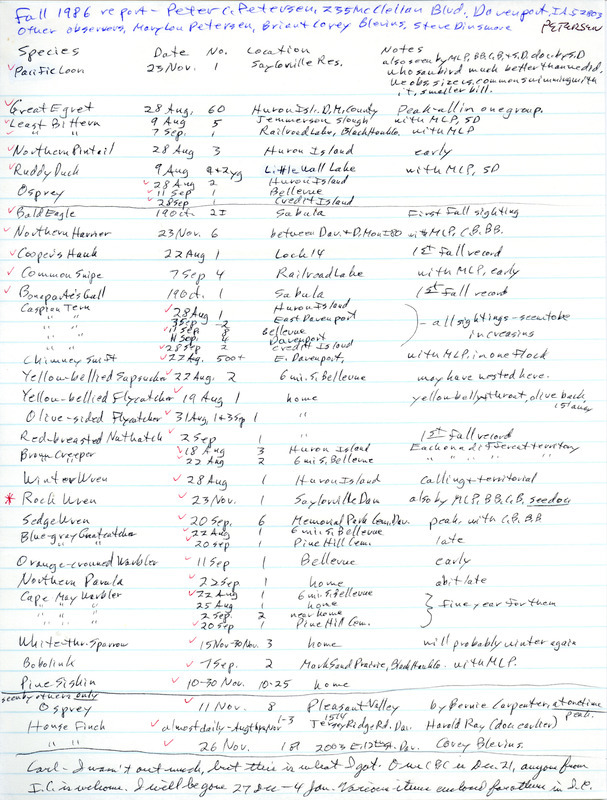 Fall 1986 report - Peter C. Petersen, 235 McClellan Blvd, Davenport, IA 52803
Other observers, MaryLou Petersen, Brian & Corey Blevins, Steve Dinsmore PETERSEN
Species Date No. Location Notes
✓Pacific Loon 23 Nov. 1 Saylorville Res. also seen by MLP, BB, C.B, & S.D. doc. by S.D
who saw bird much better than we did,
We obs. size vs. common swimming with
it, smaller bill.
✓Great Egret 28 Aug. 60 Huron Isl. D.M. County Peak - all in one group.
✓Least Bittern 9 Aug 5 Jemmerson Slough with MLP, SD
" " ✓7 Sep. 1 Railroad Lake, Black Hawk Co. with MLP
✓Northern Pintail 28 Aug 3 Huron Island early
✓Ruddy Duck 9 Aug 4+2yg Little Wall Lake with MLP, SD
Osprey ✓28 Aug 2 Huron Island
✓11 Sep 1 Bellevue
✓28 Sep 1 Credit Island
✓Bald Eagle 19 Oct. 2I Sabula First Fall sighting
✓Northern Harrier 23 Nov. 6 between Dav. & D.M. on I80 with MLP, C.B, BB.
✓Cooper's Hawk 22 Aug 1 Lock 14 1st Fall record
✓Common Snipe 7 Sep 4 Railroad Lake with MLP, early
✓Bonaparte's Gull 19 Oct. 1 Sabula 1st Fall record
Caspian Tern ✓28 Aug 1 Huron Island
" " 3 Sep 2 East Davenport - all sightings - seem to be
" " ✓11 Sep 8 Bellevue increasing
" " 11 Sep. 4 Davenport
" " ✓28 Sep 2 Credit Island
Chimney Swift ✓27 Aug. 500+ E. Davenport, with MLP, in one flock
Yellow-bellied Sapsucker ✓22 Aug. 2 6 mi. S. Bellevue may have nested here.
Yellow-bellied Flycatcher ✓19 Aug 1 home yellow belly & throat, olive back,
Olive-sided Flycatcher ✓31 Aug, 1 & 3 Sep 1 "
Red-breasted Nuthatch ✓2 Sep 1 " 1st Fall record
Brown Creeper ✓18 Aug 3 Huron Island Each on a different territory
" " ✓22 Aug 2 6 mi S. Bellevue " " " "
Winter Wren ✓28 Aug 1 Huron Island calling & territorial
* Rock Wren ✓23 Nov. 1 Saylorville Dam also by MLP, BB, C.B, see doc
Sedge Wren ✓20 Sep. 6 Memorial Park Cem. Dav. peak. with C.B, BB
Blue-gray Gnatcatcher ✓22 Aug 1 6 mi. S. Bellevue
" " ✓20 Sep. 1 Pine Hill Cem. late
Orange-crowned Warbler ✓11 Sep 1 Bellevue early
Northern Parula ✓22 Sep 1 home a bit late
Cape May Warbler ✓22 Aug 1 6 mi. S. Bellevue
" " 25 Aug 1 home fine year for them
" " 2 Sep. 2 near home
" " ✓20 Sep 1 Pine Hill Cem.
White-thr. Sparrow ✓15 Nov-30 Nov. 3 home will probably winter again
Bobolink ✓7 Sep. 2 Mark Sand Prairie, Black Hawk Co. with MLP.
Pine Siskin ✓10-30 Nov. 10-25 home
seen by others only
Osprey ✓11 Nov. 8 Pleasant Valley by Bernie Carpenter, at one time
peak.
House Finch ✓almost daily - Aug thru Nov 1-3 1514 Jersey Ridge Rd. Dav. Harold Ray (doc. earlier)
" " ✓26 Nov. 1 2003 E. 12th St. Dav. Corey Blevins
Carl - I wasn't out much, but this is what I got. Our CBC is Dec. 21, anyone from
I.C. is welcome. I will be gone 27 Dec - 4 Jan. Various items enclosed for others in I.C.